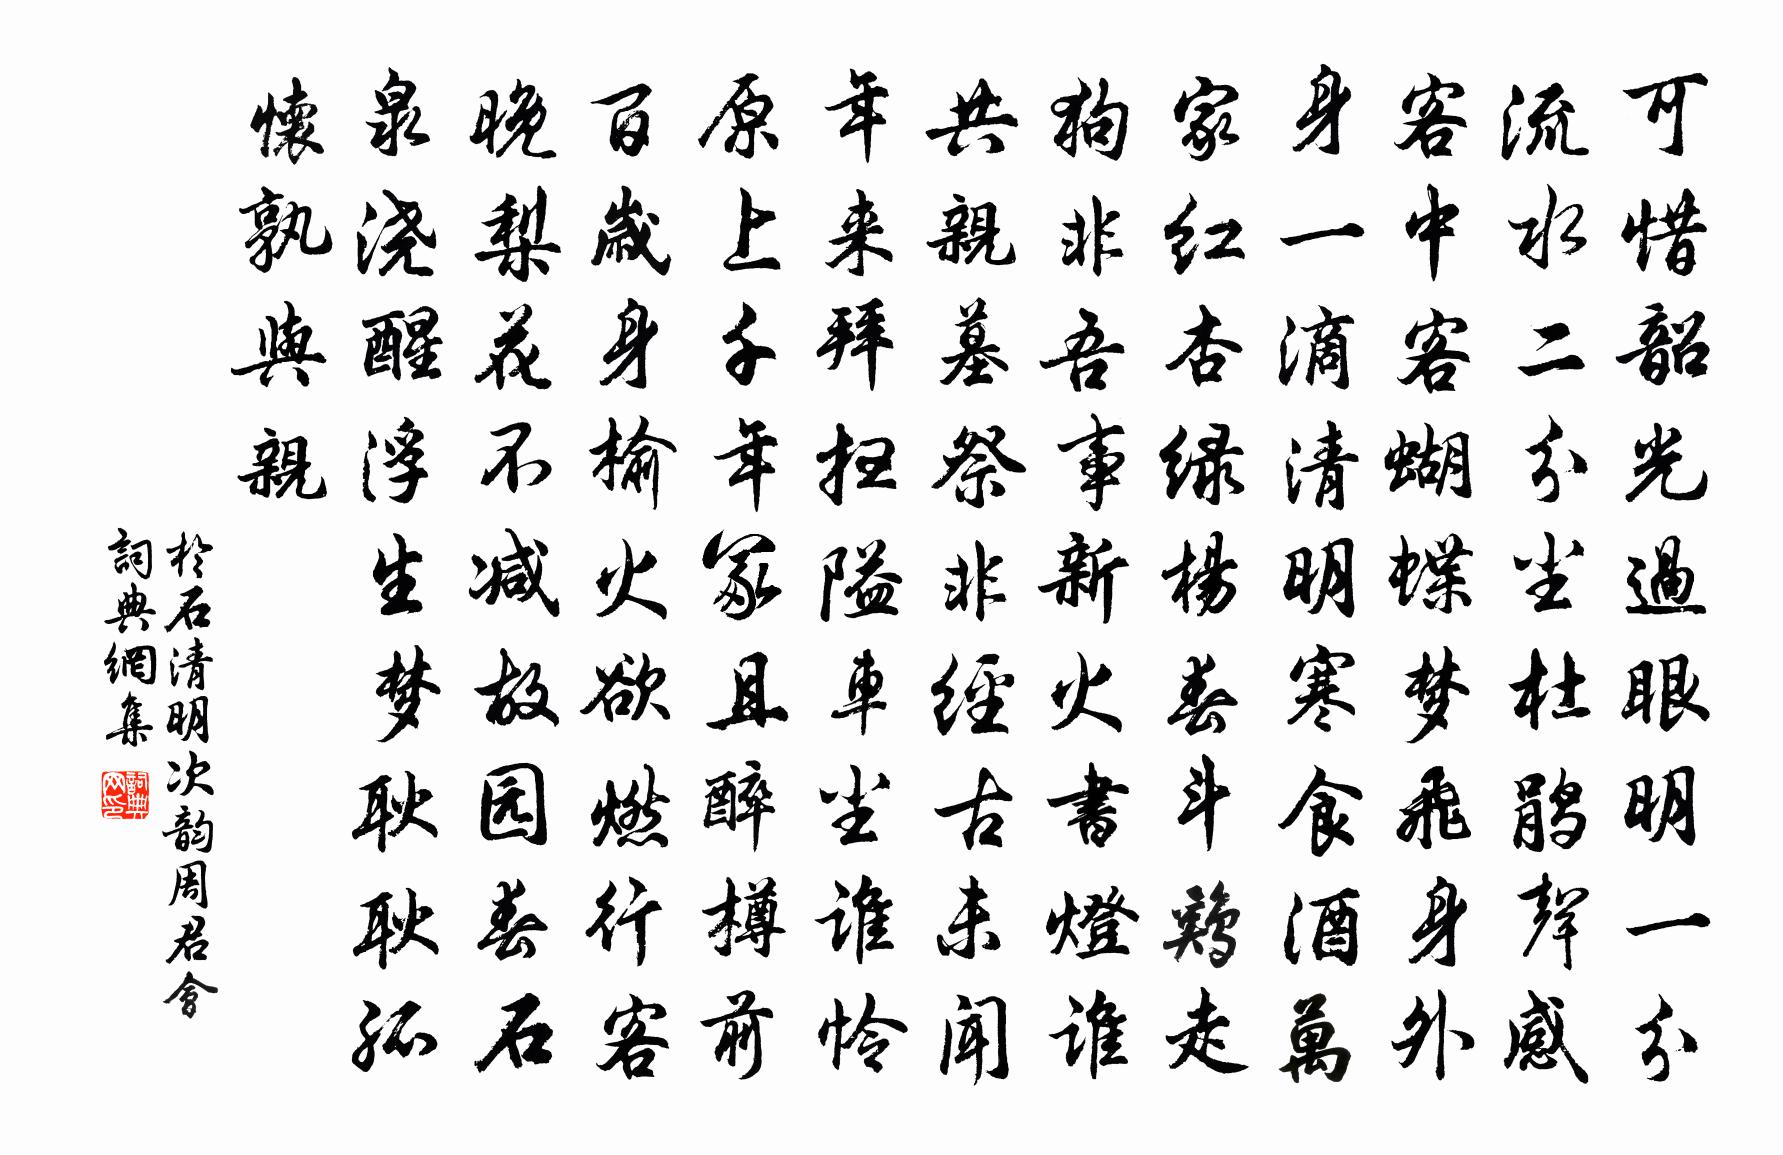 可惜韶光過眼明一分
流水二分尘杜鹃聲感
客中客蝴蝶梦飛身外
身一滴清明寒食酒萬
家红杏绿楊春斗鷄走
狗非吾事新火書燈誰
共親墓祭非經古未闻
年来拜扫隘車尘誰怜
原上千年冢且醉樽前
百歲身榆火欲燃行客
晚梨花不减故园春石
泉浇醒浮生梦耿耿孤
懷孰與親
於石清明次韵周君會
詞典網集
詞典网印